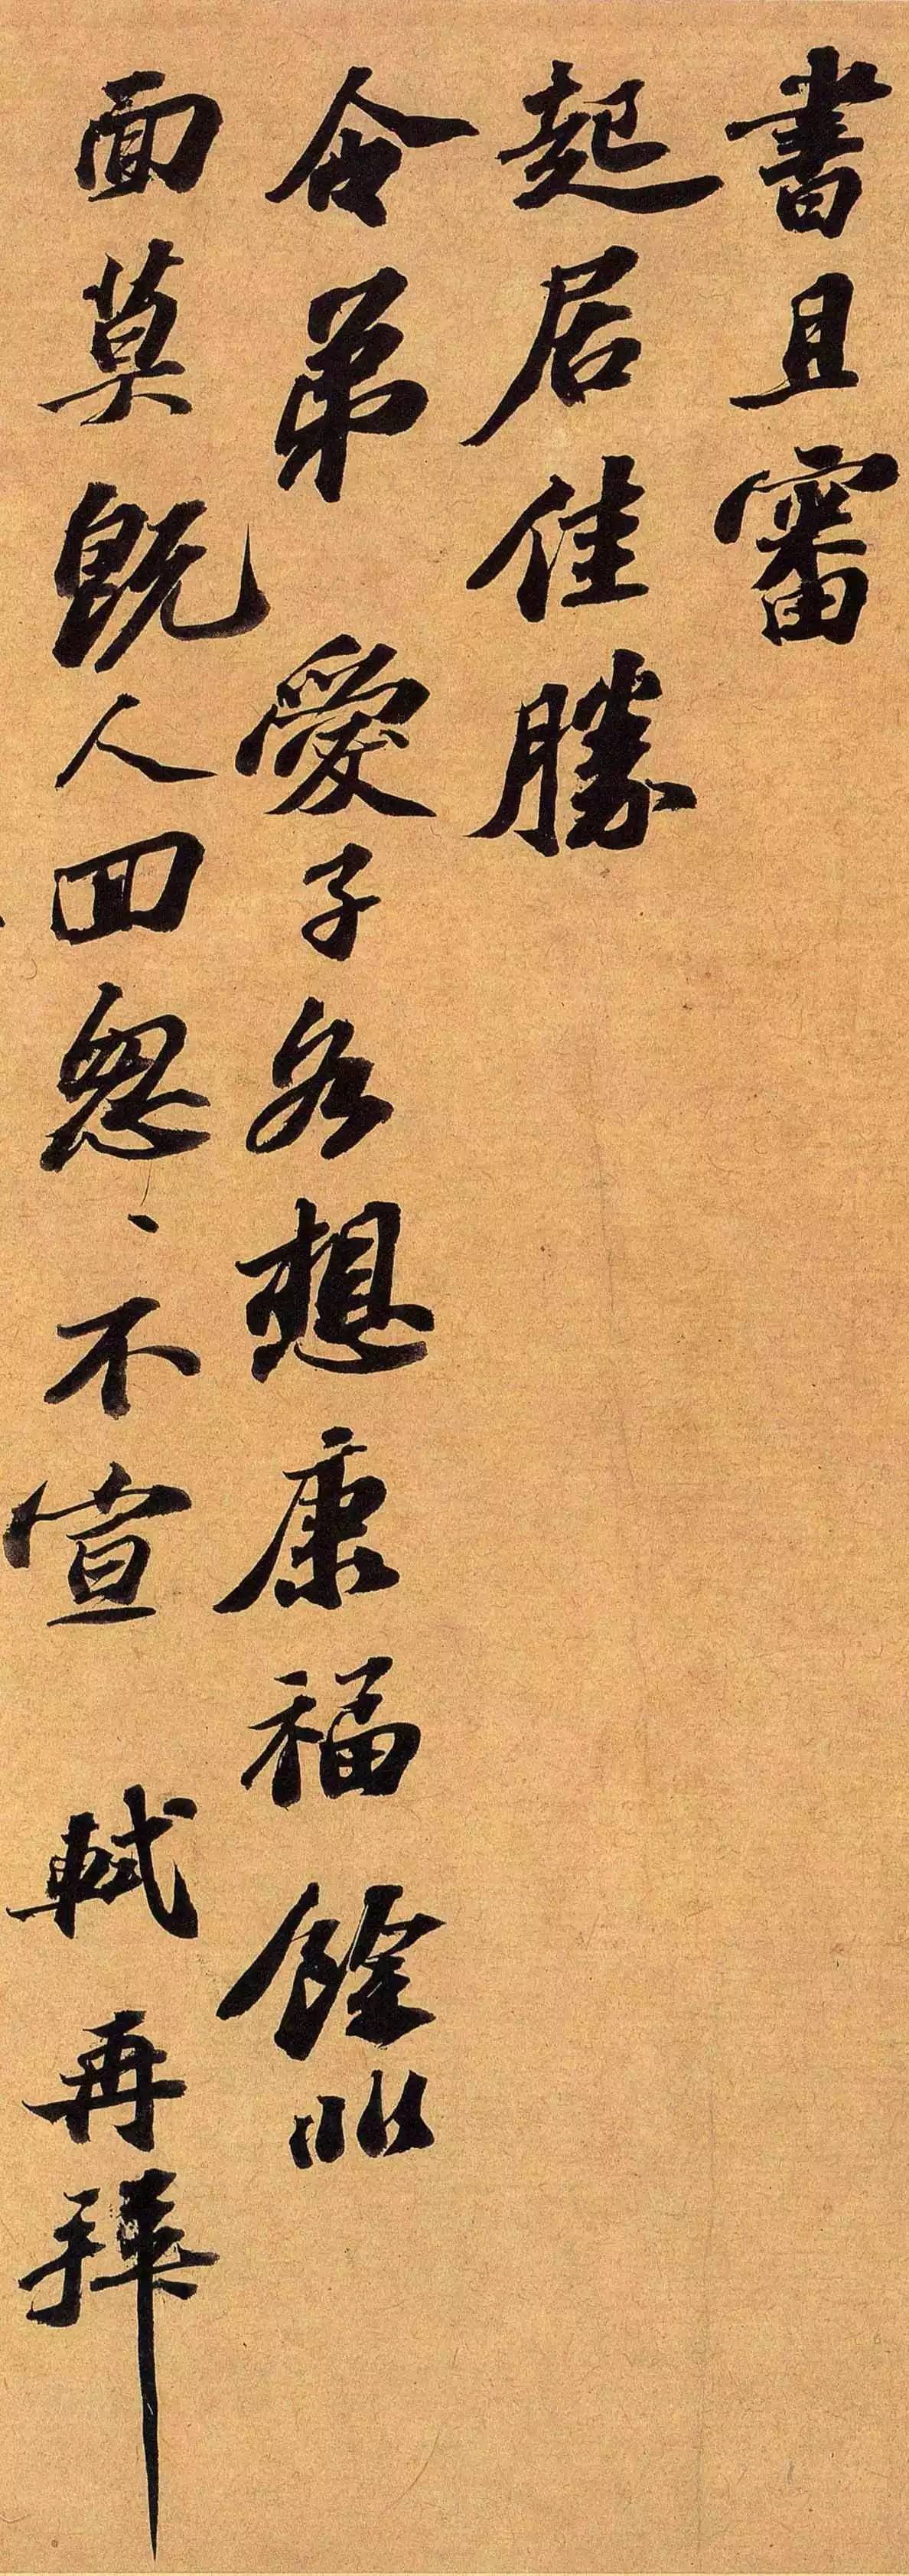 書且審
起居佳勝
令弟愛子各想康福餘非
面莫既人回怱〻不宣軾再拜